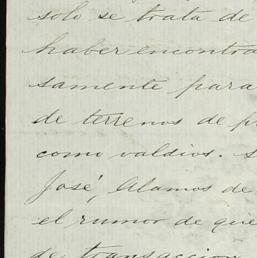 solo se trata de
haber encontra
samente para
de terrenos de p
como valdios. S
José, Alamos de
el rumor de que
de transaccion